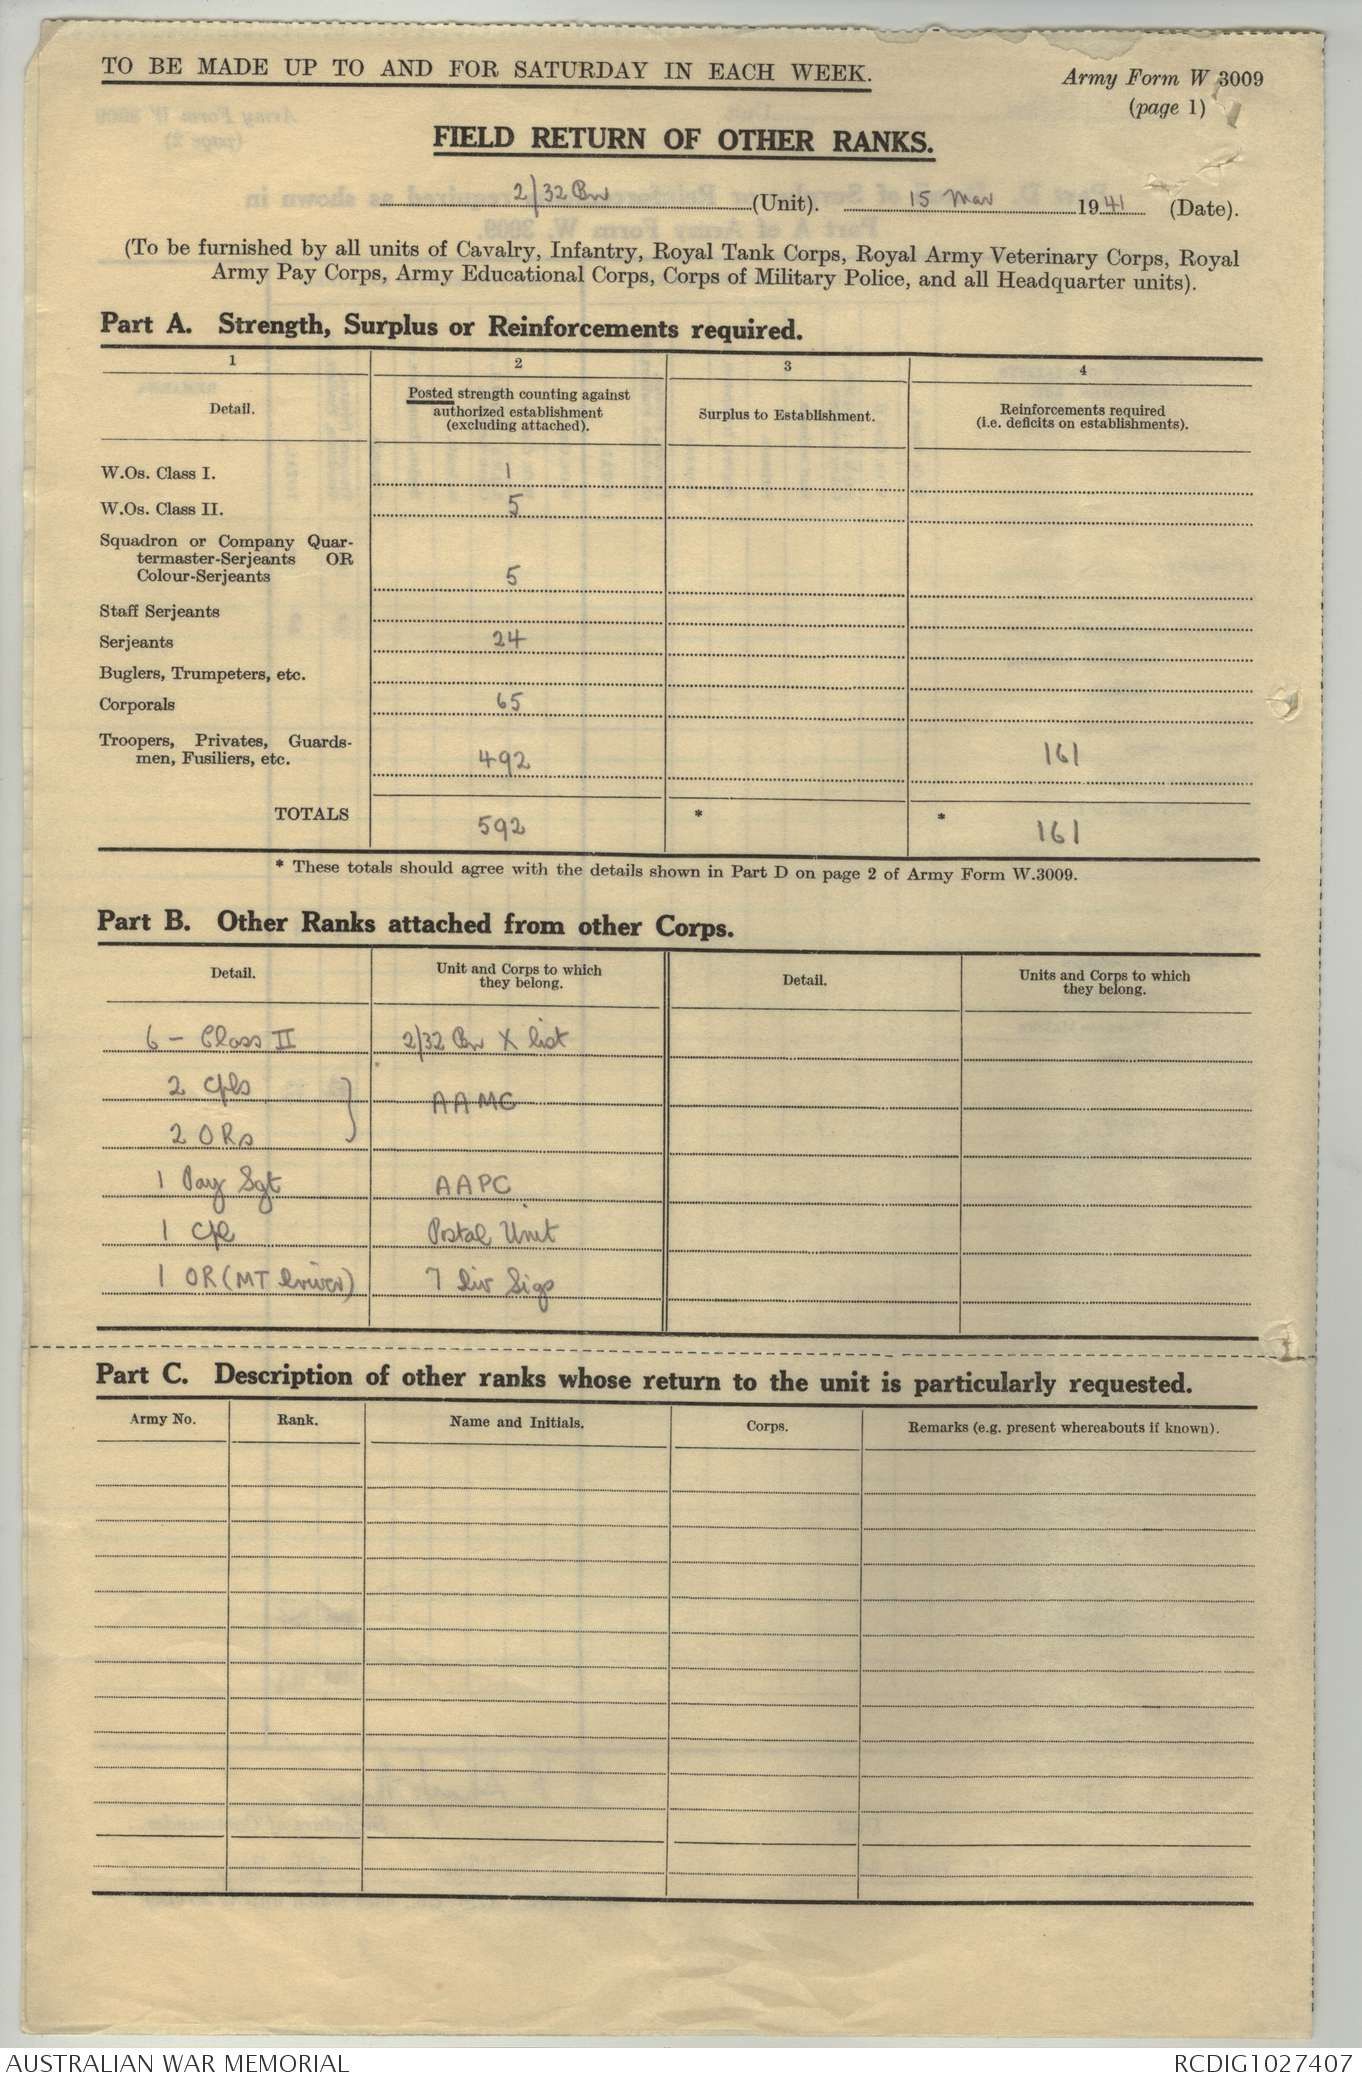 TO BE MADE UP TO AND FOR SATURDAY IN EACH WEEK.
Army Form W 3009
(page 1)
FIELD RETURN OF OTHER RANKS.
2/32 Bn (Unit). 15 Mar 1941 (Date).
(To be furnished by all units of Cavalry, Infantry, Royal Tank Corps, Royal Army Veterinary Corps, Royal
Army Pay Corps, Army Educational Corps, Corps of Military Police, and all Headquarter units).
Part A. Strength, Surplus or Reinforcements required.
1 2 3 4
Detail.
Posted strength counting against
authorized establishment
(excluding attached).
Surplus to Establishment.
Reinforcements required
(i.e. deficits on establishments).
W.Os. Class I. 1
W.Os. Class II. 5
Squadron or Company Quar-
termaster-Serjeants OR
Colour-Serjeants 5
Staff Serjeants
Serjeants 24
Buglers, Trumpeters, etc.
Corporals 65
Troopers, Privates, Guards-
men, Fusiliers, etc. 492 161
TOTALS 592 * * 161
* These totals should agree with the details shown in Part D on page 2 of Army Form W.3009.
Part B. Other Ranks attached from other Corps.
Detail.
Unit and Corps to which
they belong.
Detail.
Units and Corps to which
they belong.
6 - Class II 2/32 Bn X list
2 Cpls } AAMC
2 ORs
1 Pay Sgt AAPC
1 Cpl Postal Unit
1 OR (MT Driver) 7 Div Sigs
Part C. Description of other ranks whose return to the unit is particularly requested.
Army No. Rank. Name and Initials. Corps. Remarks (e.g. present whereabouts if known).
AUSTRALIAN WAR MEMORIAL RCDIG1027407